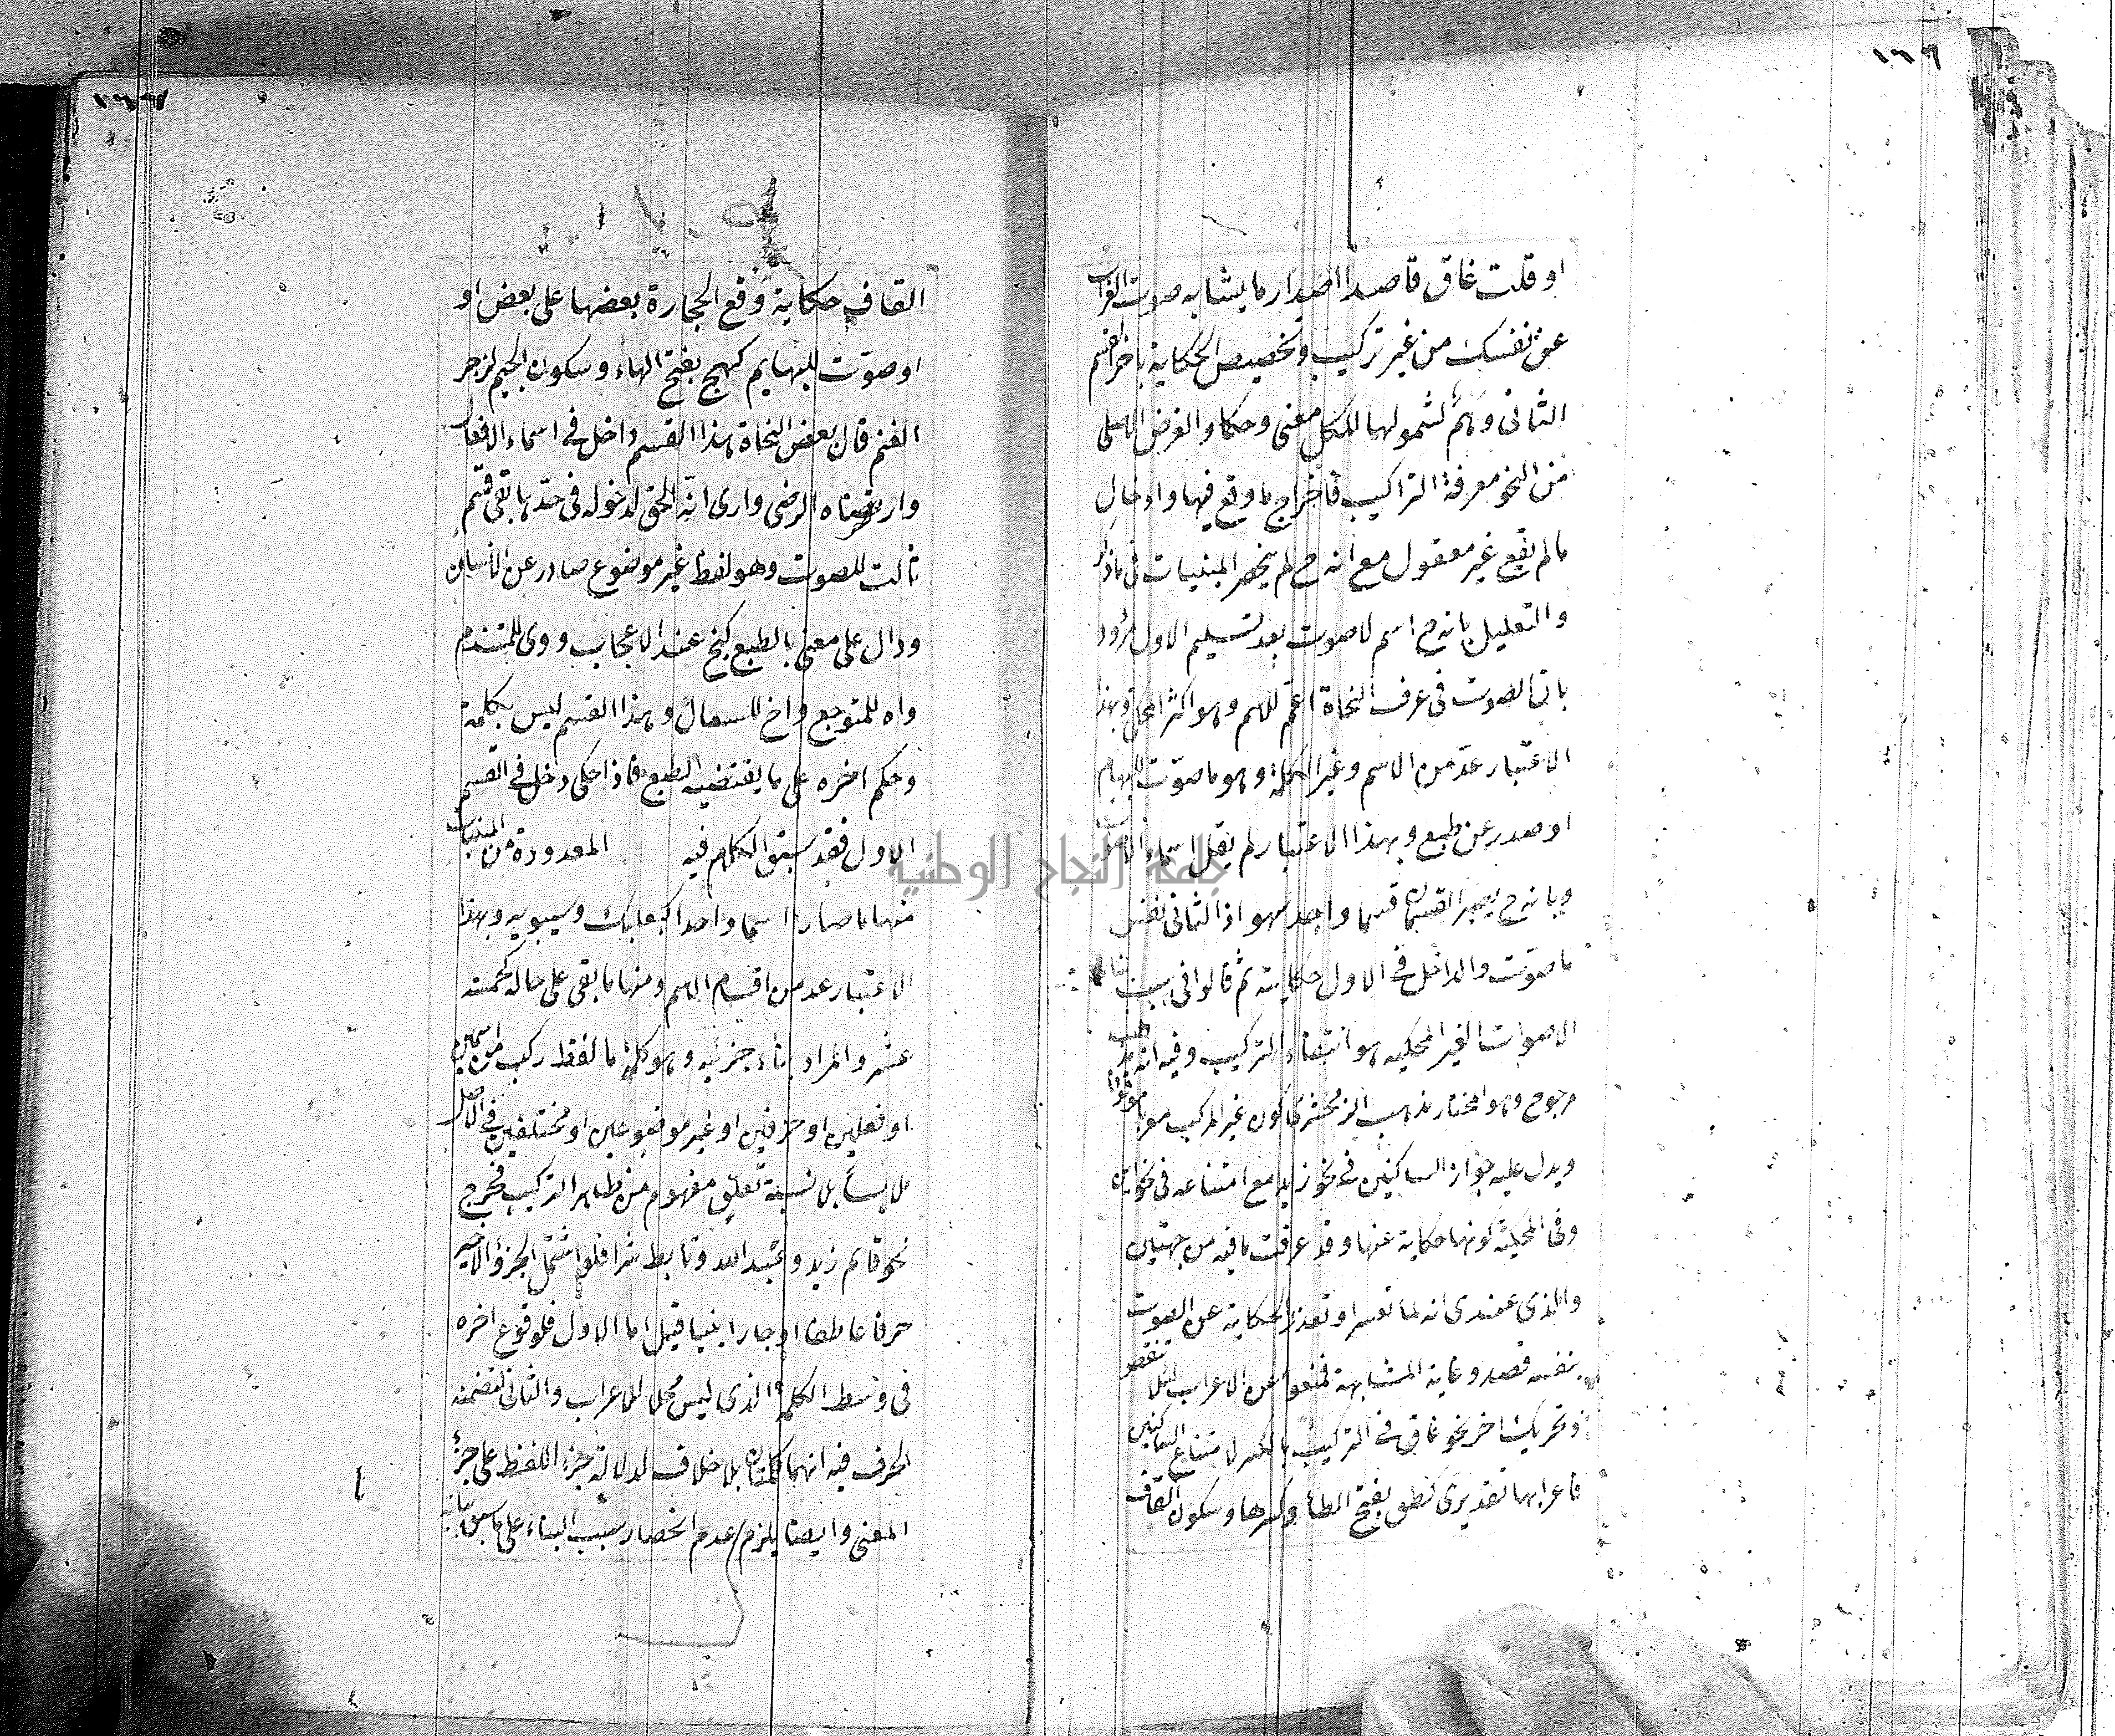 ١٦٦
او قلت غاق قاصدا اصدار ما يشابه صوت الغراب
عن نفسك من غير تركيب وتخصيص الحكاية باخر القسم
الثانى وهم لشمولها للكل معنى وحكما والغرض الاصلى
من النحو معرفة التراكيب فاخراج ما وقع فيها وادخال
ما لم يقع غير معقول مع انه ح لم ينحصر المبنيات فى ما ذكر
والتعليل بانه ح اسم لا صوت بعد تسليم الاول مردود
بان الصوت فى عرف النحاة اعم للاسم وهو اكثر وبهذا
الاعتبار عد من الاسم وغير الكلمة وهو ما صوت للبهايم
او صدر عن طبع وبهذا الاعتبار لم يقل اسماء الاصوات
وبانه ح يصير القسمان قسما واحد سهو اذ الثانى نفس
ما صوت والداخل فى الاول حكايته ثم قالوا فى سبب بناء
الاصوات الغير المحكيه هو انتفاء التركيب وفيه انه مذهب
مرجوح وهو المختار مذهب الزمخشرى كون غير المركب معربا موقوفا
ويدل عليه جواز الساكنين فى نحو زيد مع امتناعه فى نحو اين
وفى المحكية كونها حكاية عنها وقد عرفت ما فيه من جهتين
والذى عندى انه لما تعسر او تعذر الحكاية عن الصوت
بنفسه قصدوا غاية المشابهة فمنعوا عن الاعراب لئلا تنقص
وتحريك اخر نحو غاق فى التركيب بالكسر لامتناع الساكنين
فاعرابها تقديرى كطق بفتح الطاء وكسرها وسكون القاف
القاف حكاية وقع الحجارة بعضها على بعض او
او صوت للبهايم كهج بفتح الهاء وسكون الجيم لزجر
الغنم قال بعض النحاة هذا القسم داخل فى اسماء الافعال
وارتضاه الرضى وارى انه الحق لدخوله فى حد ما بقى قسم
ثالث للصوت وهو لفظ غير موضوع صادر عن الانسان
ودال على معنى بالطبع كبخ عند الاعجاب ووى للمتندم
واه للمتوجع واخ للسعال وهذا القسم ليس بكلمة
وحكم اخره على ما يقتضيه الطبع فاذا حكى دخل فى القسم
الاول فقد سبق الكلام فيه المعدودة من المبنيات
منها ما صار اسما واحدا كبعلبك وسيبويه وبهذا
الاعتبار عد من اقسام الاسم ومنها ما بقى على حاله كخمسة
عشر والمراد بناء جزئيه وهو كلمة ما لفظ ركب من اسمين
او فعلين او حرفين او غير موضوعين او مختلفين فى الاصل
بلا نسبة تعلق مفهوم من ظاهر التركيب فخرج
نحو قائم زيد وعبد الله وتابط شرا فلو اشتمل الجزؤ الاخير
حرفا عاطفا او جارا بنيا قيل اما الاول فلوقوع اخره
فى وسط الكلمة الذى ليس محلا للاعراب والثانى لتضمنه
الحرف فيه انهما كلمتان بلا خلاف لدلالة جزء اللفظ على جزء
المعنى وايضا يلزم عدم انحصار سبب البناء على ما سبق بيانه
جامعة النجاح الوطنية